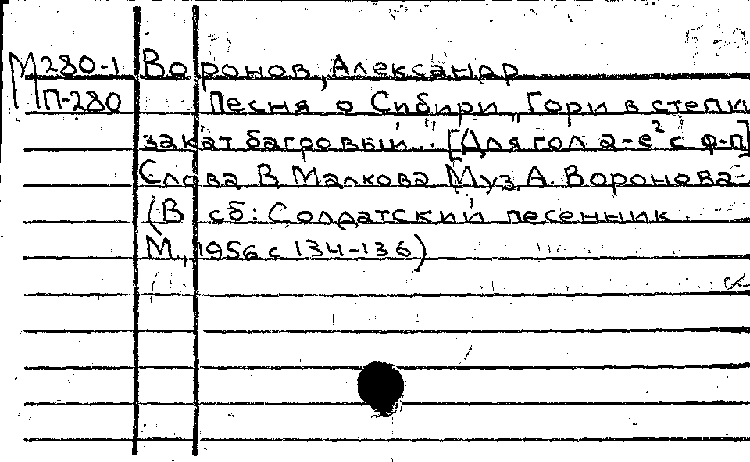 М280-1 Воронов, Александр
П-280 Песня о Сибири "Гори в степи
закат багровый..." [Для гол 2-е² с ф-п]
Слова В. Малкова Муз. А. Воронова-
(В сб: Солдатский песенник.
М., 1956 с 134-136)